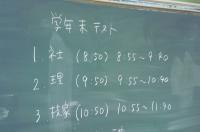 学年末テスト
1. 社 (8:50) 8:55～9:40
2. 理 (9:50) 9:55～10:40
3. 技家 (10:50) 10:55～11:40